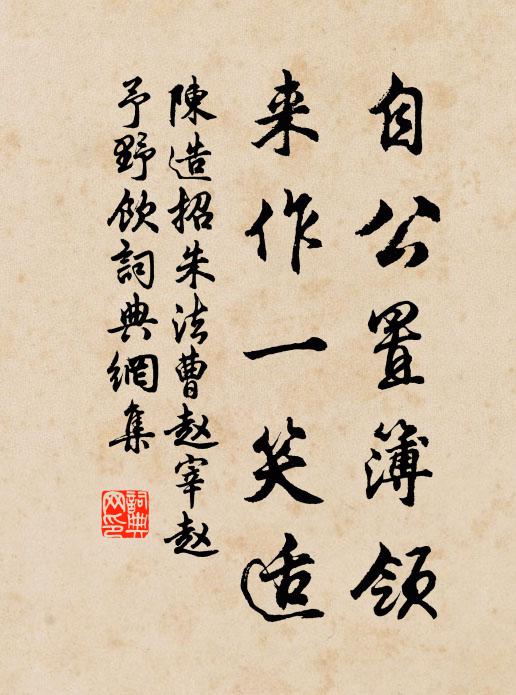 自公置簿領
来作一笑适
陳造招朱法曹趙宰趙
予野飲詞典網集
詞典網印